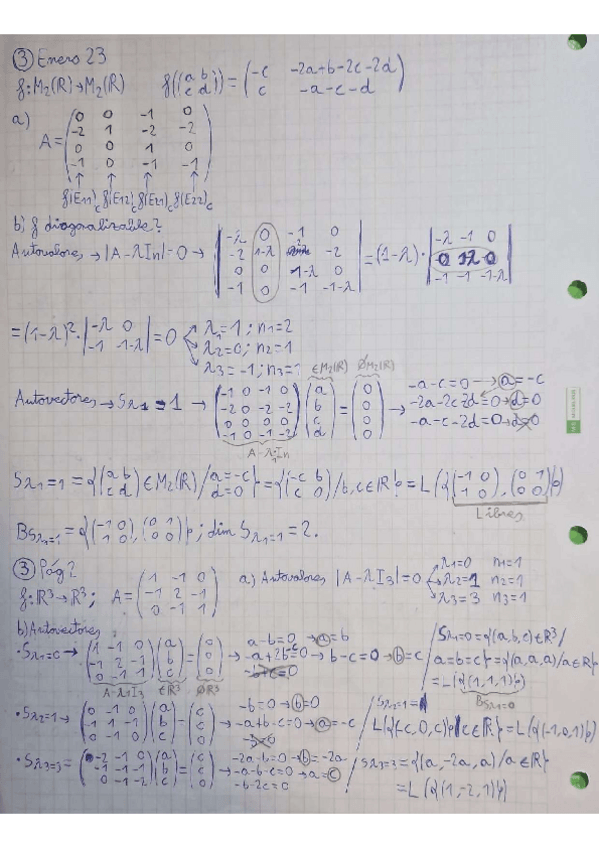 ③ Enero 23
f: M₂(ℝ)→M₂(ℝ) f((a b; c d)) = (-c -2a+b-2c-2d; c -a-c-d)
a) A = (0 0 -1 0; -2 1 -2 -2; 0 0 1 0; -1 0 -1 -1)
f(E11)c f(E12)c f(E21)c f(E22)c
b) f diagonalizable?
Autovalores → |A-λIn|=0 → |-λ 0 -1 0; -2 1-λ -2; 0 0 1-λ 0; -1 0 -1 -1-λ| = (1-λ)·|-λ -1 0; 0 1-λ 0; -1 -1 -1-λ|
= (1-λ)²·|-λ 0; -1 -1-λ| = 0 λ₁=1; n₁=2
λ₂=0; n₂=1
λ₃=-1; n₃=1
Autovectores → Sλ₁=1 → (-1 0 -1 0; -2 0 -2 -2; 0 0 0 0; -1 0 -1 -2) (a; b; c; d) = (0; 0; 0; 0) → -a-c=0 → a=-c
∈M₂(ℝ) ØM₂(ℝ)
-2a-2c-2d=0 → d=0
-a-c-2d=0 → d=0
A-λ₁In
Sλ₁=1 = {(a b; c d) ∈ M₂(ℝ) / a=-c d=0} = {(-c b; c 0) / b,c∈ℝ} = L({(-1 0; 1 0), (0 1; 0 0)})
Libres
BSλ₁=1 = {(-1 0; 1 0), (0 1; 0 0)}; dim Sλ₁=1 = 2.
③ Pág 2
f: ℝ³→ℝ³; A = (1 -1 0; -1 2 -1; 0 -1 1) a) Autovalores |A-λI₃|=0 λ₁=0 n₁=1
λ₂=1 n₂=1
λ₃=3 n₃=1
b) Autovectores
·Sλ₁=0 → (1 -1 0; -1 2 -1; 0 -1 1) (a; b; c) = (0; 0; 0) → a-b=0 → a=b
-a+2b-c=0 → b-c=0 → b=c
-b+c=0
A-λ₁I₃ ∈ℝ³ Øℝ³
Sλ₁=0={(a,b,c)∈ℝ³/
a=b=c}={(a,a,a)/a∈ℝ}
=L({(1,1,1)})
BSλ₁=0
·Sλ₂=1 → (0 -1 0; -1 1 -1; 0 -1 0) (a; b; c) = (c; c; 0) → -b=0 → b=0
-a+b-c=0 → a=-c
-b=0
Sλ₂=1=
L({(-c,0,c)/c∈ℝ})=L({(-1,0,1)})
·Sλ₃=3 = (-2 -1 0; -1 -1 -1; 0 -1 -2) (a; b; c) = (c; c; c) → -2a-b=0 → b=-2a
-a-b-c=0 → a=c
-b-2c=0
Sλ₃=3={(a,-2a,a)/a∈ℝ}
=L({(1,-2,1)})